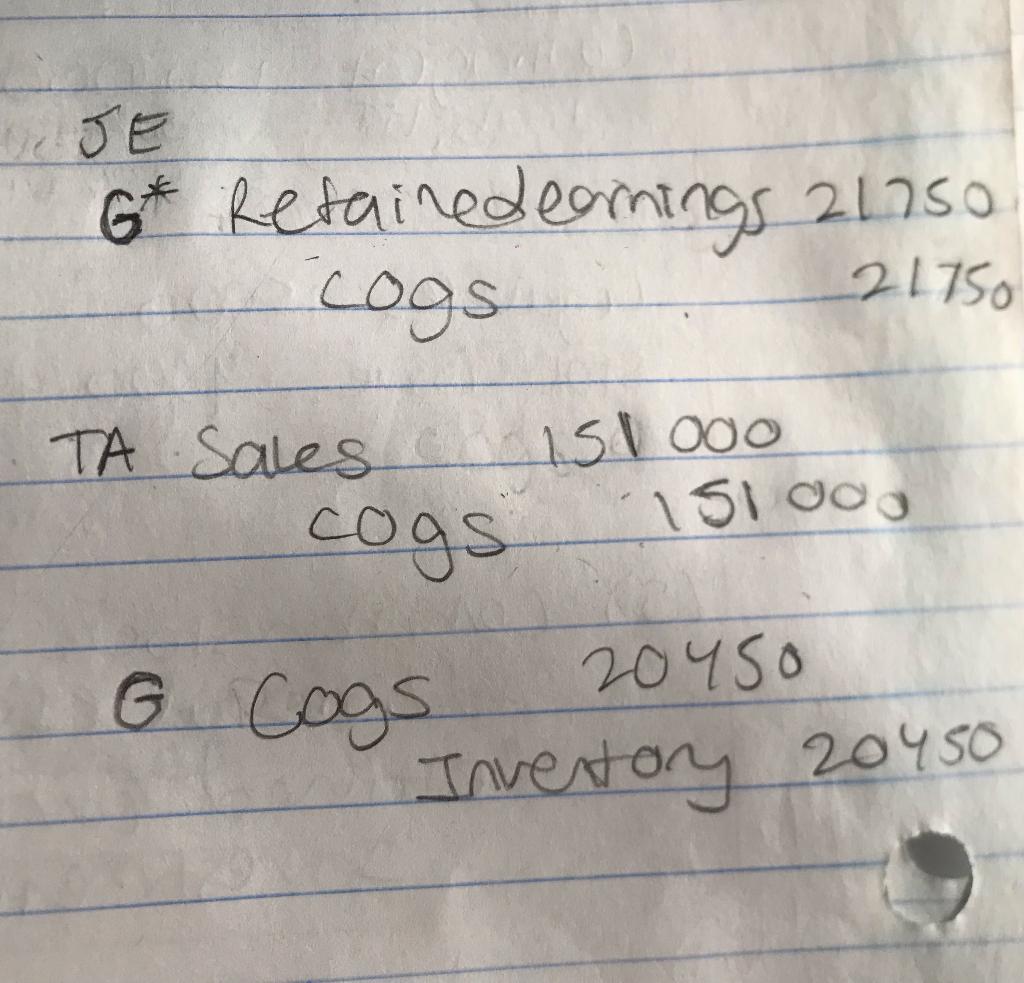 JE
G* Retained earnings 21750
cogs 21750
TA Sales 151 000
cogs 151 000
G Cogs 20450
Inventory 20450